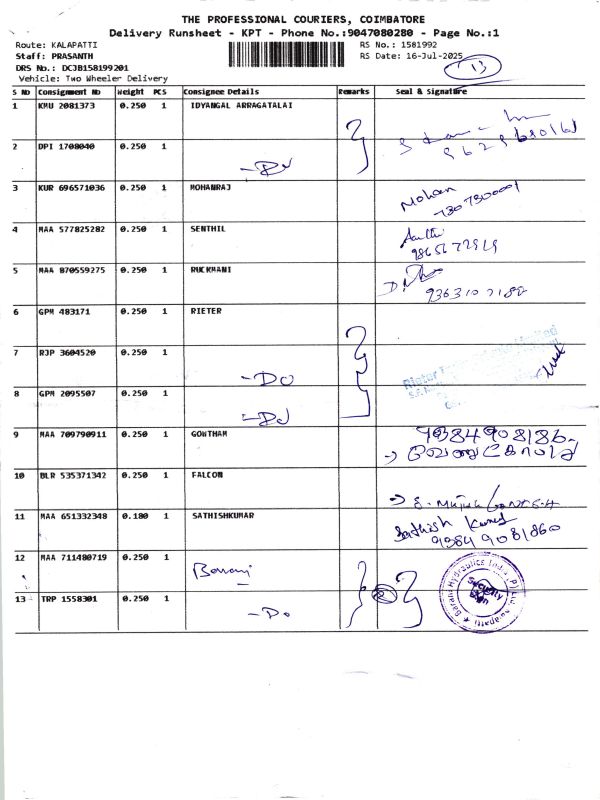 THE PROFESSIONAL COURIERS, COIMBATORE
Delivery Runsheet - KPT - Phone No.:9047080280 - Page No.:1
Route: KALAPATTI
RS No.: 1581992
Staff: PRASANTH
RS Date: 16-Jul-2025
13
DRS No.: DCJB158199201
Vehicle: Two Wheeler Delivery
S No Consignment No Weight PCS Consignee Details Remarks Seal & Signature
1 KMU 2081373 0.250 1 IDYANGAL ARRAGATALAI
2 DPI 1708040 0.250 1
3 KUR 696571036 0.250 1 MOHANRAJ Mohan
4 MAA 577825282 0.250 1 SENTHIL
5 MAA 870559275 0.250 1 RUCKMANI
6 GPM 483171 0.250 1 RIETER
7 RJP 3604520 0.250 1 -DO
Rieter
8 GPM 2095507 0.250 1 -DO
9 MAA 709790911 0.250 1 GOWTHAM
10 BLR 535371342 0.250 1 FALCON
11 MAA 651332348 0.180 1 SATHISHKUMAR Sathish Kumar
9384 9081860
12 MAA 711480719 0.250 1
13 TRP 1558301 0.250 1 -Do
Security
Sign